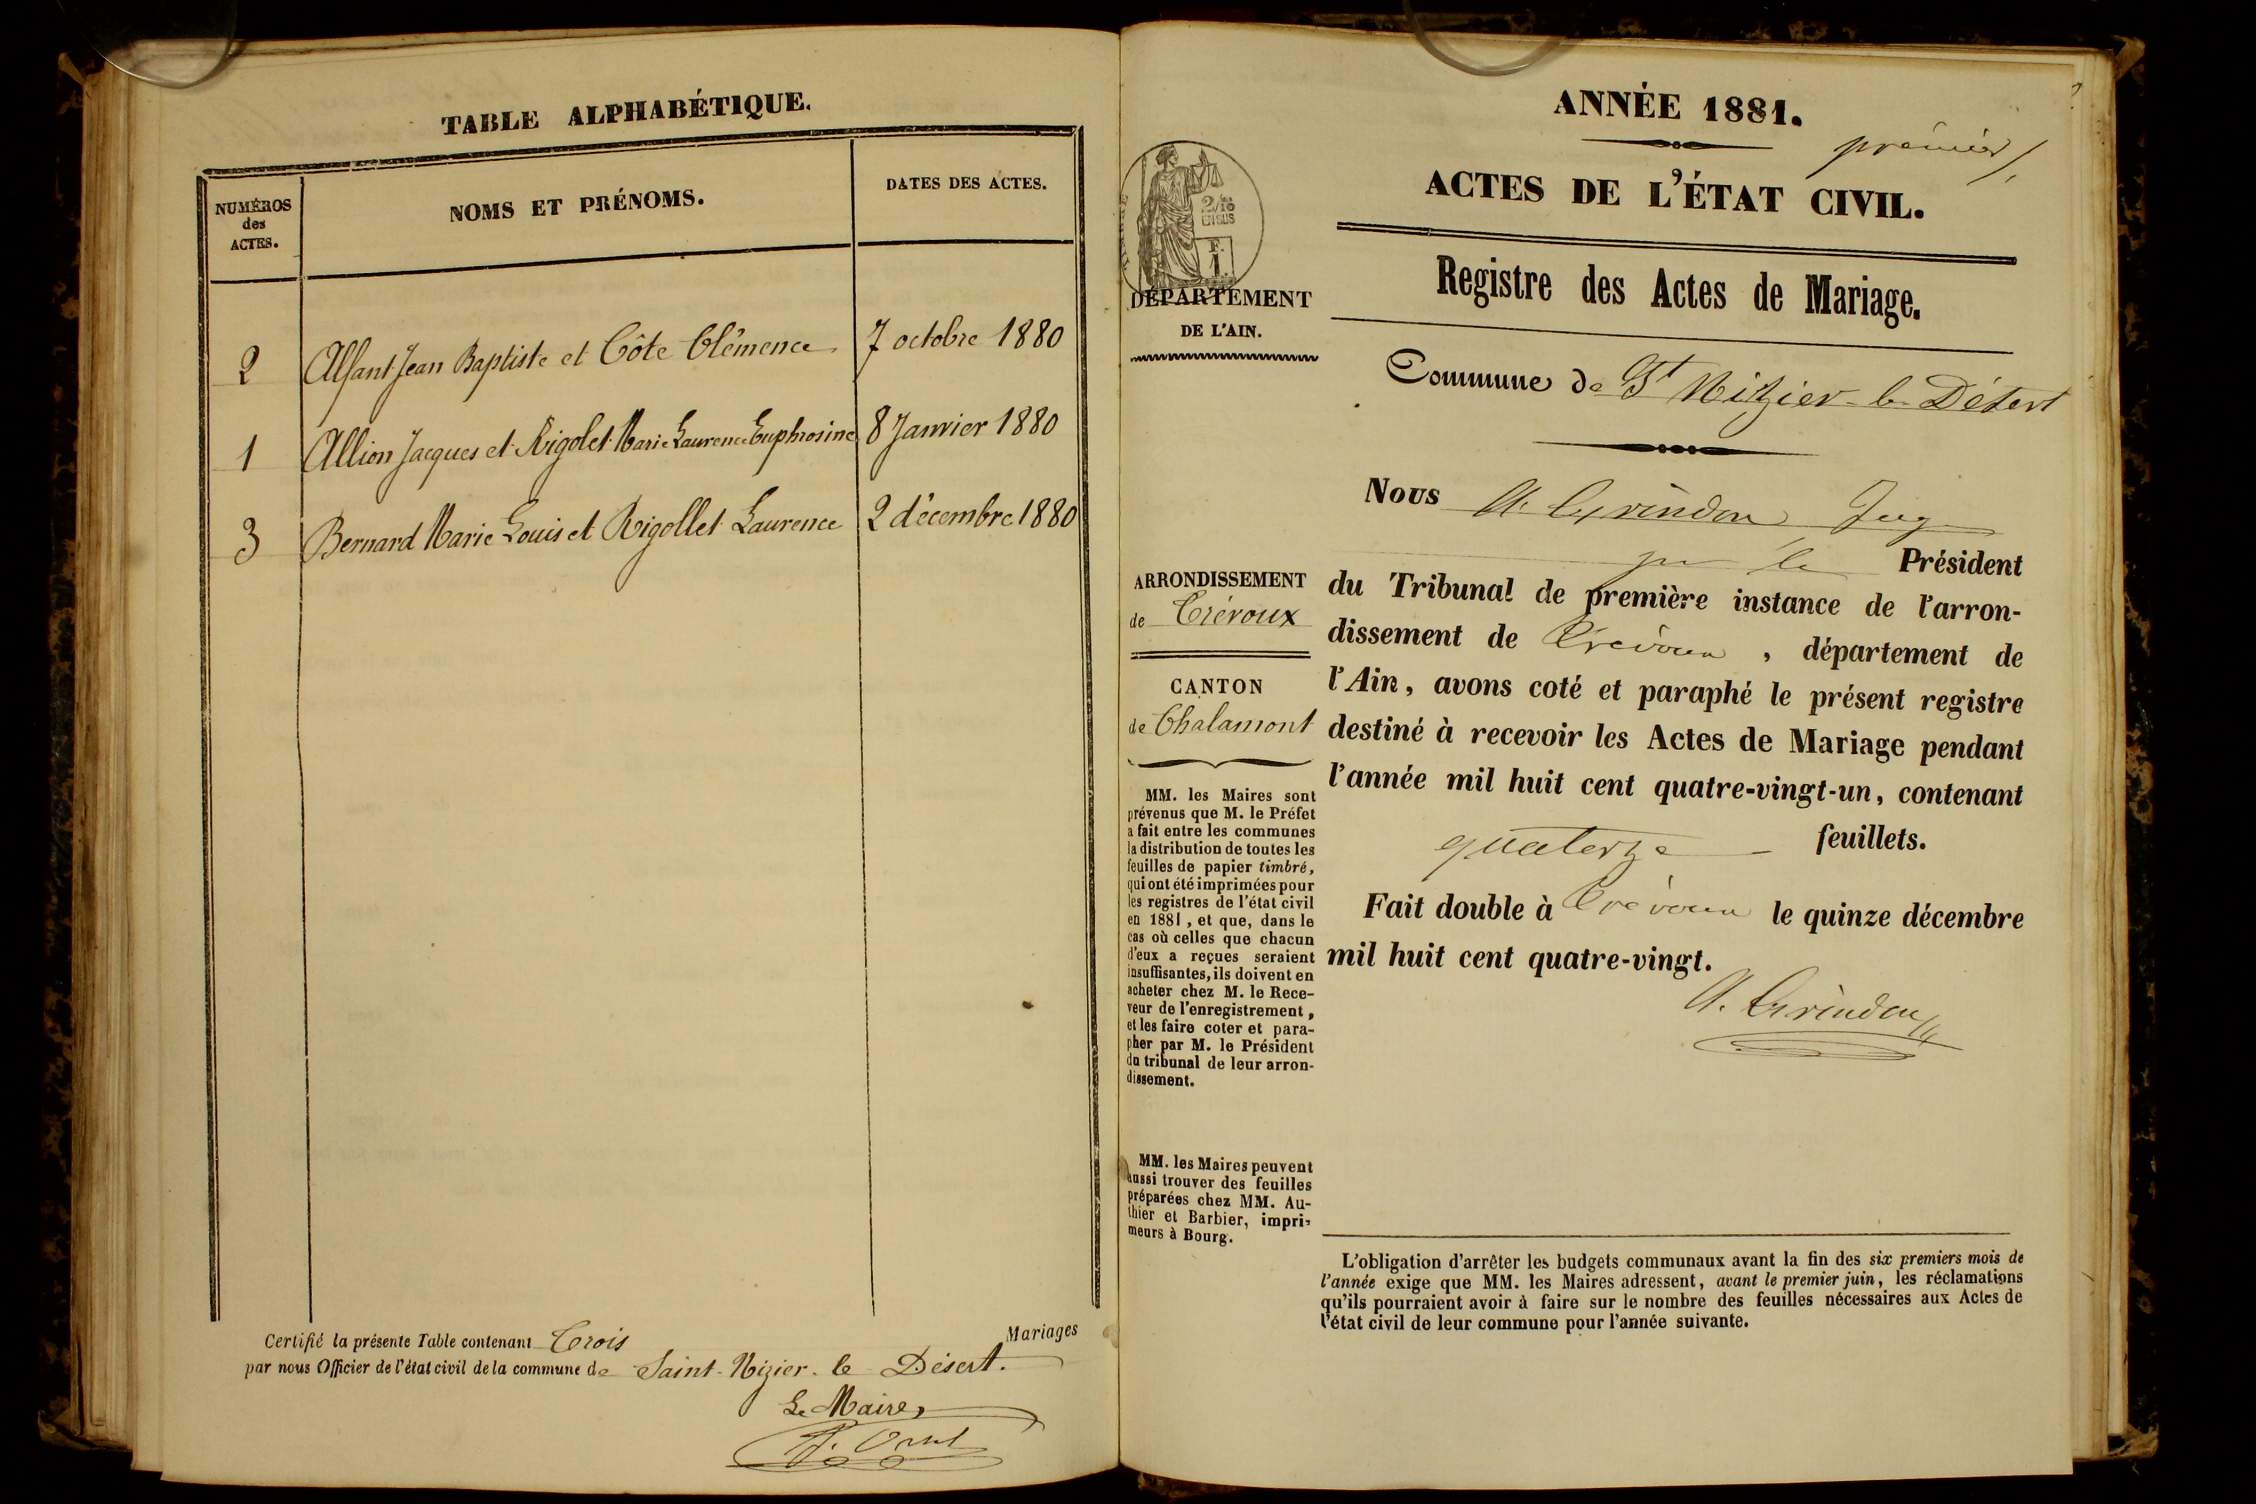 TABLE ALPHABÉTIQUE.
NUMÉROS
des
ACTES.
NOMS ET PRÉNOMS.
DATES DES ACTES.
2 Alfant Jean Baptiste et Côte Clémence 7 octobre 1880
1 Allion Jacques et Rigolet Marie Laurence Euphrosine 8 Janvier 1880
3 Bernard Marie Louis et Rigollet Laurence 2 décembre 1880
Certifié la présente Table contenant Trois Mariages
par nous Officier de l'état civil de la commune de Saint-Nizier-le-Désert.
Le Maire,
ANNÉE 1881.
premier
ACTES DE L'ÉTAT CIVIL.
Registre des Actes de Mariage.
2/10
EN SUS
F.
1.
DÉPARTEMENT
DE L'AIN.
Commune de St Nizier-le-Désert
ARRONDISSEMENT
de Trévoux
CANTON
de Chalamont
MM. les Maires sont
prévenus que M. le Préfet
a fait entre les communes
la distribution de toutes les
feuilles de papier timbré,
qui ont été imprimées pour
les registres de l'état civil
en 1881, et que, dans le
cas où celles que chacun
d'eux a reçues seraient
insuffisantes, ils doivent en
acheter chez M. le Rece-
veur de l'enregistrement,
et les faire coter et para-
pher par M. le Président
du tribunal de leur arron-
dissement.
MM. les Maires peuvent
aussi trouver des feuilles
préparées chez MM. Au-
thier et Barbier, impri-
meurs à Bourg.
Nous A. Grindon Juge
pr le Président
du Tribunal de première instance de l'arron-
dissement de Trévoux, département de
l'Ain, avons coté et paraphé le présent registre
destiné à recevoir les Actes de Mariage pendant
l'année mil huit cent quatre-vingt-un, contenant
quatorze feuillets.
Fait double à Trévoux le quinze décembre
mil huit cent quatre-vingt.
A. Grindon
L'obligation d'arrêter les budgets communaux avant la fin des six premiers mois de
l'année exige que MM. les Maires adressent, avant le premier juin, les réclamations
qu'ils pourraient avoir à faire sur le nombre des feuilles nécessaires aux Actes de
l'état civil de leur commune pour l'année suivante.